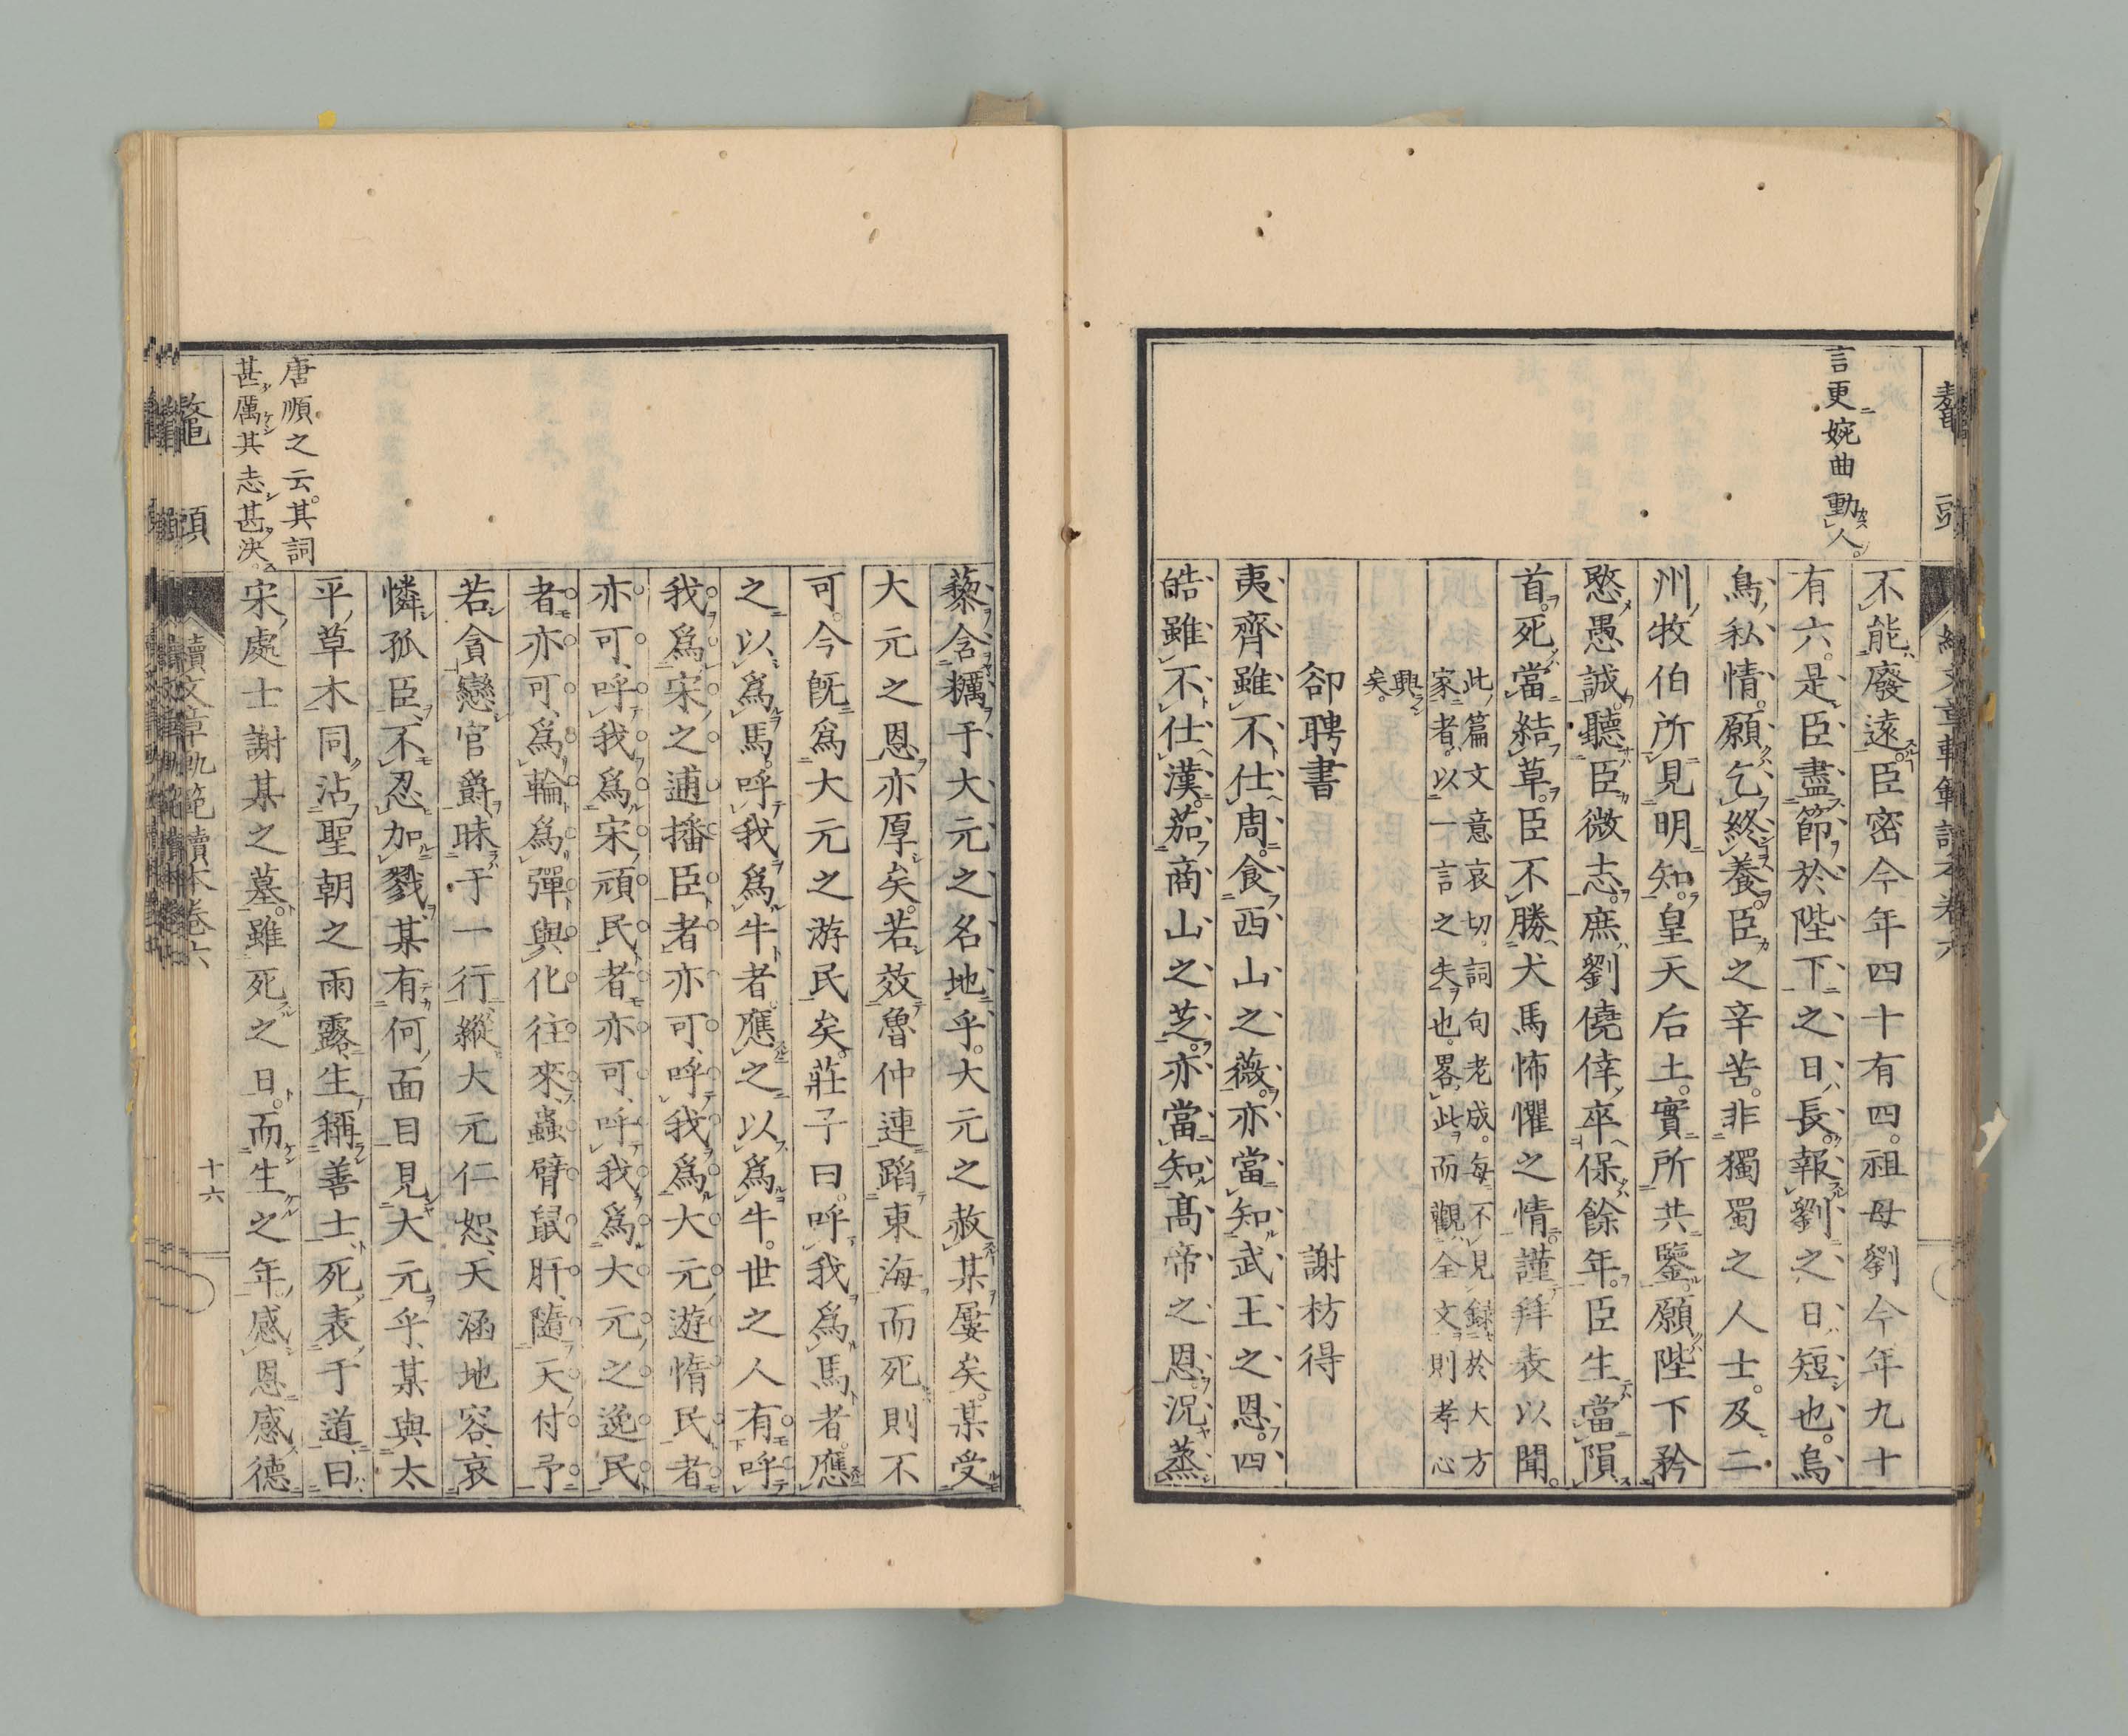 鼇頭
續文章軌範讀本卷六
言更婉曲動人。
不能廢遠。臣密今年四十有四。祖母劉今年九十
有六。是臣盡節於陛下之日長。報劉之日短也。烏
鳥私情。願乞終養。臣之辛苦。非獨蜀之人士。及二
州牧伯所見明知。皇天后土。實所共鑒。願陛下矜
愍愚誠。聽臣微志。庶劉僥倖。卒保餘年。臣生當隕
首。死當結草。臣不勝犬馬怖懼之情。謹拜表以聞。
此篇文意哀切。詞句老成。每不見録於大方
家者。以一言之失也。畧此而觀全文。則孝心
興
矣。
卻聘書 謝枋得
夷齊雖不仕周。食西山之薇。亦當知武王之恩。四
皓雖不仕漢。茹商山之芝。亦當知高帝之恩。況蒸
藜含糲于大元之名地乎。大元之赦某屢矣。某受
大元之恩亦厚矣。若效魯仲連蹈東海而死則不
可。今既爲大元之游民矣。莊子曰。呼我爲馬者。應
之以爲馬。呼我爲牛者應之以爲牛。世之人有呼
我爲宋之逋播臣者亦可、呼我爲大元遊惰民者
亦可、呼我爲宋頑民者亦可、呼我爲大元之逸民
者亦可、爲輪爲彈與化往來。蟲臂鼠肝、隨天付予
若貪戀官爵昧于一行、縱大元仁恕、天涵地容、哀
憐孤臣、不忍加戮、某有何面目見大元乎、某與太
平草木同沾聖朝之雨露、生稱善士、死表于道曰
宋處士謝某之墓。雖死之日。而生之年、感恩感德
唐順之云。其詞
甚厲其志甚決。
鼇頭
續文章軌範讀本卷六
十六